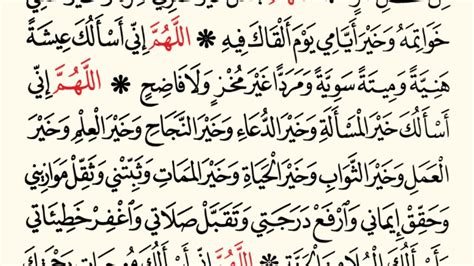 خَوَاتِمَهُ وَخَيْرَ أَيَّامِي يَوْمَ أَلْقَاكَ فِيهِ ❋ اَللَّهُمَّ إِنِّي أَسْأَلُكَ عِيشَةً
هَنِيَّةً وَمِيتَةً سَوِيَّةً وَمَرَدًّا غَيْرَ مُخْزٍ وَلَا فَاضِحٍ ❋ اَللَّهُمَّ إِنِّي
أَسْأَلُكَ خَيْرَ الْمَسْأَلَةِ وَخَيْرَ الدُّعَاءِ وَخَيْرَ النَّجَاحِ وَخَيْرَ الْعِلْمِ وَخَيْرَ
الْعَمَلِ وَخَيْرَ الثَّوَابِ وَخَيْرَ الْحَيَاةِ وَخَيْرَ الْمَمَاتِ وَثَبِّتْنِي وَثَقِّلْ مَوَازِينِي
وَحَقِّقْ إِيمَانِي وَارْفَعْ دَرَجَتِي وَتَقَبَّلْ صَلَاتِي وَاغْفِرْ خَطِيئَاتِي
وَأَسْأَلُكَ الْعُلَا مِنَ الْجَنَّةِ ❋ اَللَّهُمَّ إِنِّي أَسْأَلُكَ مُوجِبَاتِ رَحْمَتِكَ